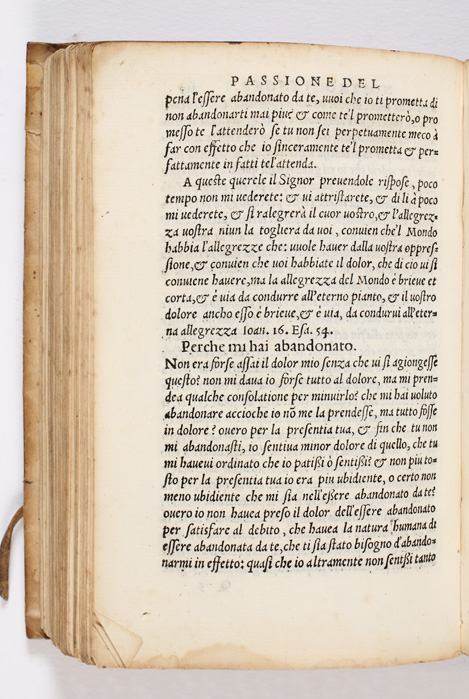 PASSIONE DEL
pena l'essere abandonato da te, vuoi che io ti prometta di
non abandonarti mai piu? & come te'l prometterò, o pro
messo te l'attenderò se tu non sei perpetuamente meco à
far con effetto che io sinceramente te'l prometta & per-
fattamente in fatti tel'attenda.
A queste querele il Signor prevendole rispose, poco
tempo non mi vederete: & vi attristarete, & di li à poco
mi vederete, & si ralegrerà il cuor vostro, & l'allegrez-
za vostra niun la togliera da voi, convien che'l Mondo
habbia l'allegrezze che: vuole haver dalla vostra oppres-
sione, & convien che voi habbiate il dolor, che di cio vi si
conviene havere, ma la allegrezza del Mondo è brieve et
corta, & è via da condurre all'eterno pianto, & il vostro
dolore ancho esso è brieve, & è via, da condurvi all'eter-
na allegrezza Ioan. 16. Esa. 54.
Perche mi hai abandonato.
Non era forse assai il dolor mio senza che vi si agiongesse
questo? non mi dava io forse tutto al dolore, ma mi pren-
dea qualche consolatione per minuirlo? che mi hai voluto
abandonare accioche io nõ me la prendesse, ma tutto fosse
in dolore? overo per la presentia tua, & fin che tu non
mi abandonasti, io sentiva minor dolore di quello, che tu
mi havevi ordinato che io patißi ò sentißi? & non piu to-
sto per la presentia tua io era piu ubidiente, o certo non
meno ubidiente che mi sia nell'eßere abandonato da te?
overo io non havea preso il dolor dell'essere abandonato
per satisfare al debito, che havea la natura humana di
essere abandonata da te, che ti sia stato bisogno d'abando-
narmi in effetto: quasi che io altramente non sentißi tanto